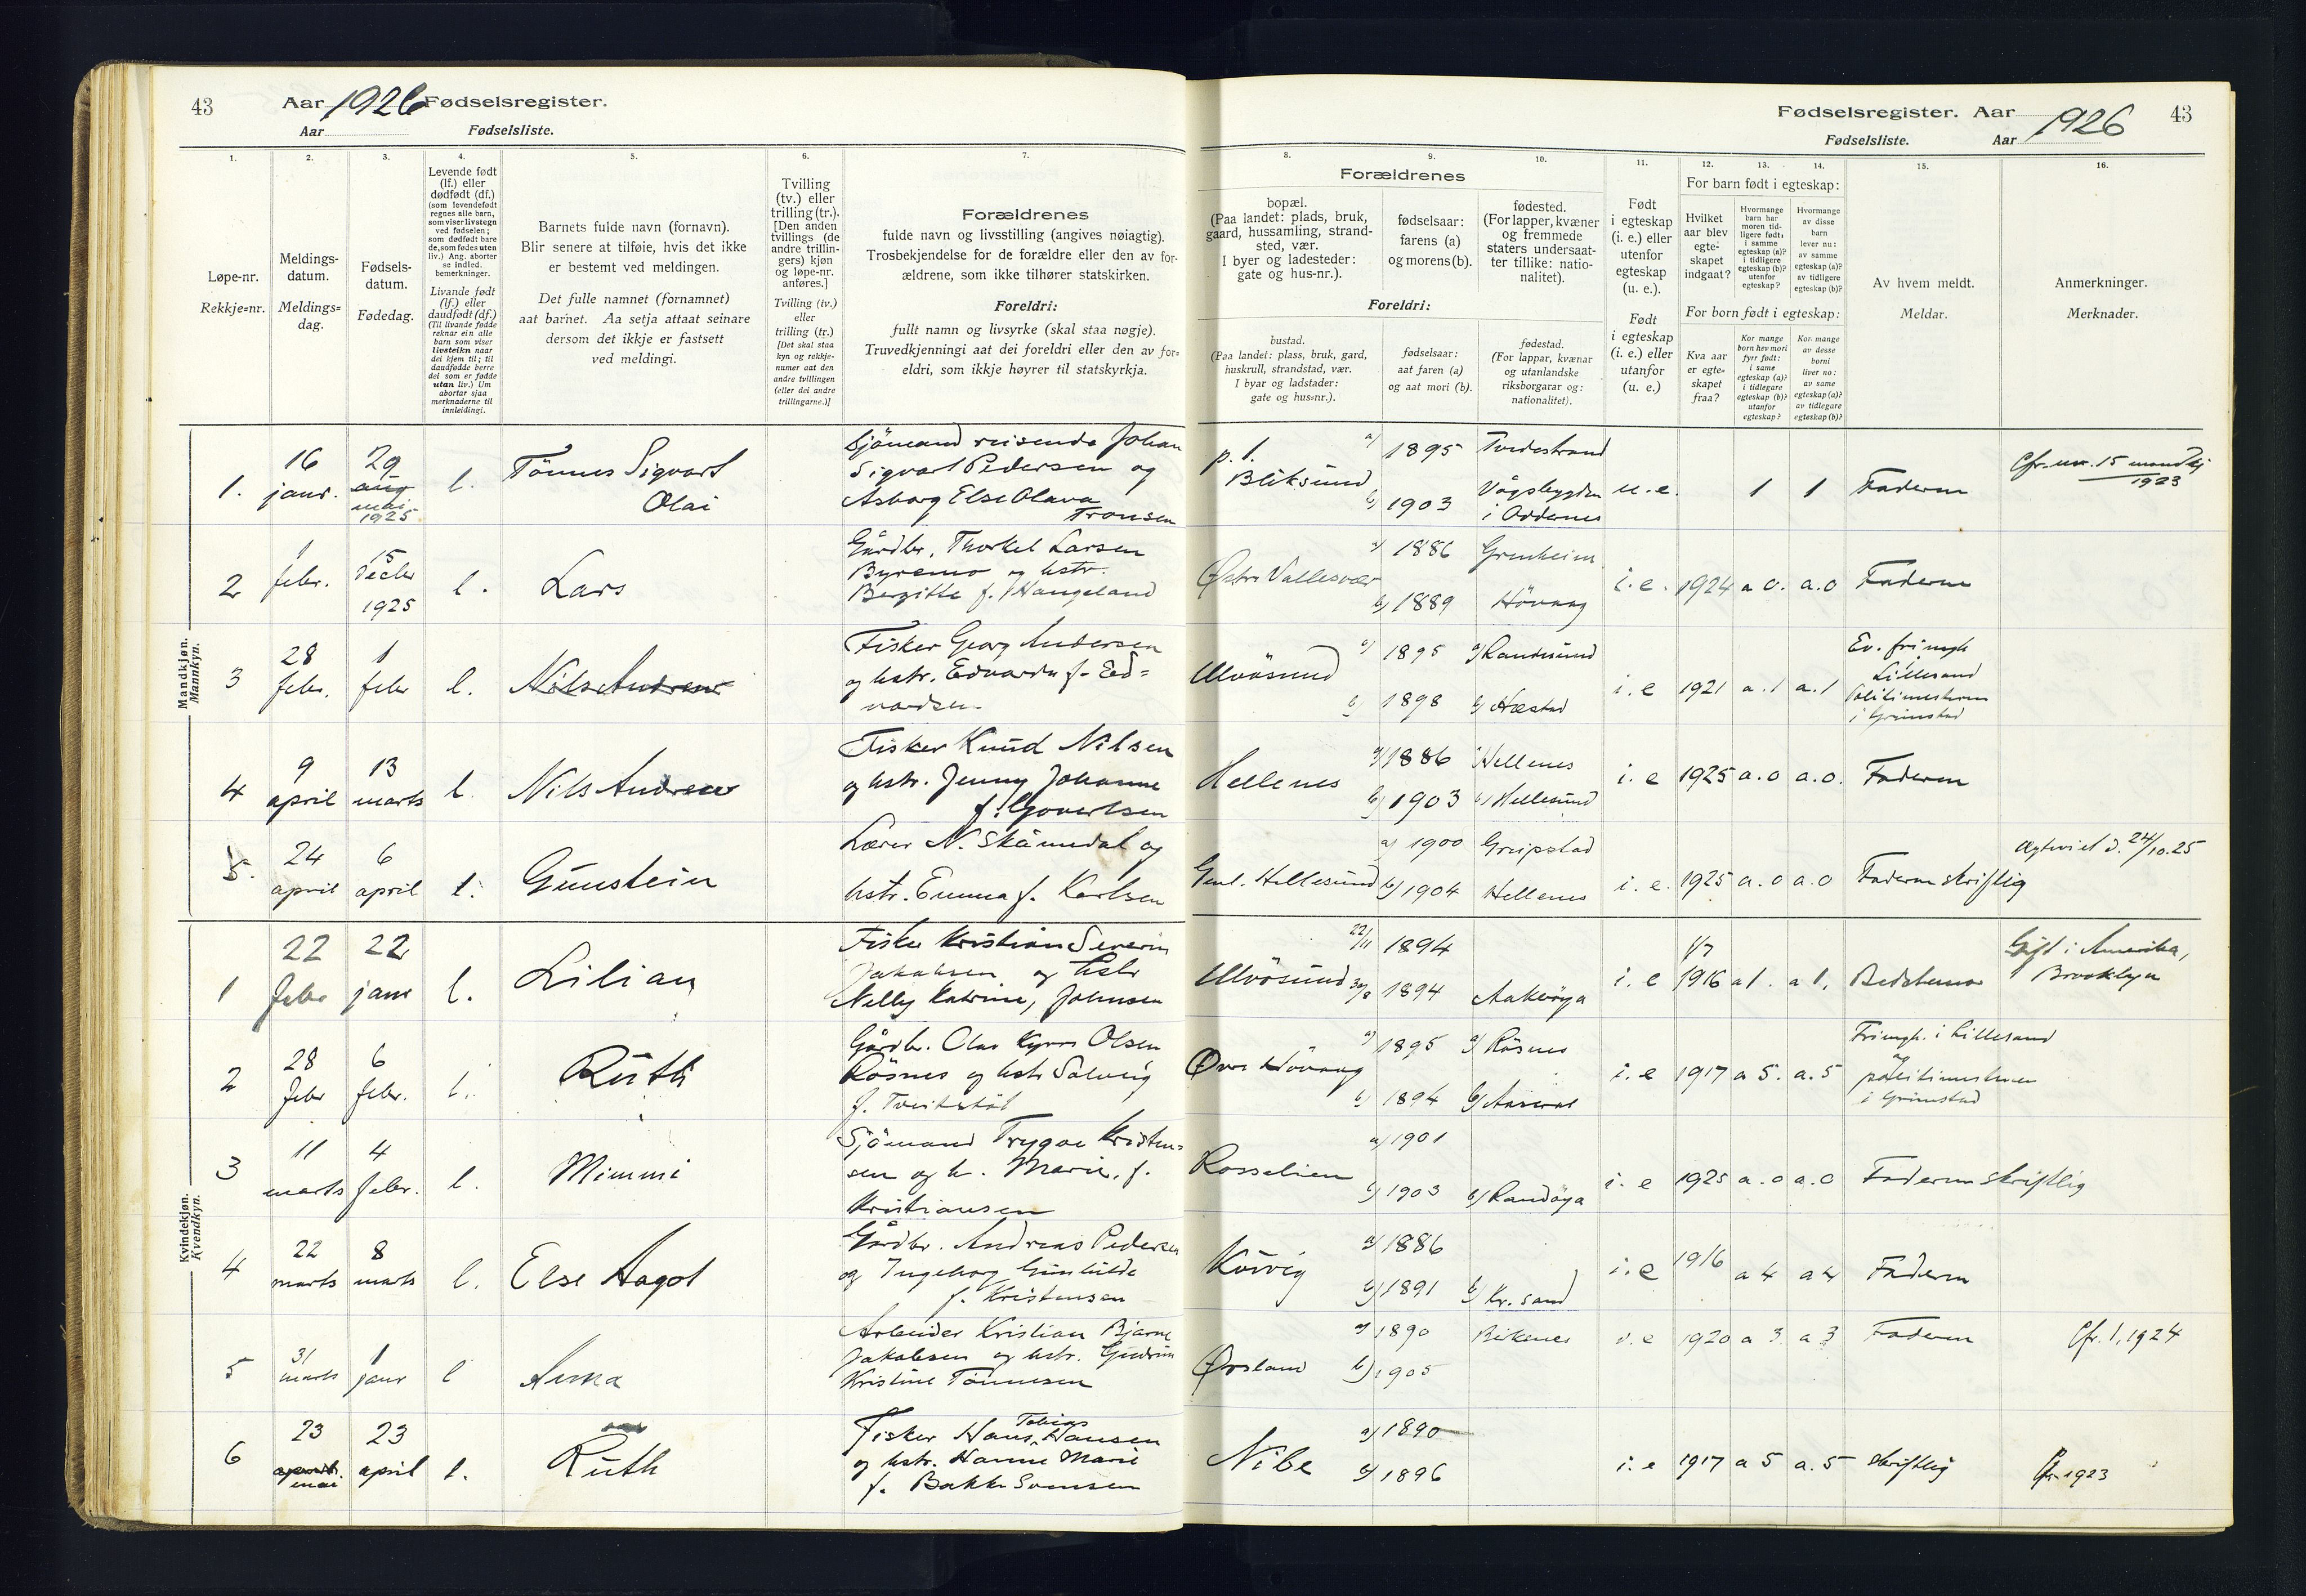 43
Aar 1926 Fødselsregister.
Aar Fødselsliste.
1.
2.
3.
4.
5.
6.
7.
Løpe-nr.
Rekkje=nr.
Meldings-
datum.
Meldings=
dag.
Fødsels-
datum.
Fødedag.
Levende født
(lf.) eller
dødfødt (df.)
(som levendefødt
regnes alle barn,
som viser livstegn
ved fødselen;
som dødfødt bare
de, som fødes uten
liv.) Ang. aborter
se indled.
bemerkninger.
Livande født
(lf.) eller
daudfødt (df.)
(Til livande fødde
reknar ein alle
barn som viser
livsteikn naar
dei kjem til; til
daudfødde berre
dei som er fødde
utan liv.) Um
abortar sjaa
merknaderne til
innleidingi.
Barnets fulde navn (fornavn).
Blir senere at tilføie, hvis det ikke
er bestemt ved meldingen.
Det fulle namnet (fornamnet)
aat barnet. Aa setja attaat seinare
dersom det ikkje er fastsett
ved meldingi.
Tvilling
(tv.) eller
trilling (tr.).
[Den anden
tvillings (de
andre trillin-
gers) kjøn
og løpe-nr.
anføres.]
Tvilling (tv.)
eller
trilling (tr.)
[Det skal staa
kyn og rekkje-
numer aat den
andre tvillingen
(eller dei andre
trillingarne.)]
Forældrenes
fulde navn og livsstilling (angives nøiagtig).
Trosbekjendelse for de forældre eller den av for-
ældrene, som ikke tilhører statskirken.
Foreldri:
fullt namn og livsyrke (skal staa nøgje).
Truvedkjenningi aat dei foreldri eller den av for=
eldri, som ikkje høyrer til statskyrkja.
Mandkjøn.
Mannkyn.
1.
16
janr.
29
aug
mai
1925
l.
Tönnes Sigvart
Olai
Sjömand reisende Johan
Sigvart Pedersen og
Asborg Else Olava
Tronsen
2
1
febr.
15
decbr
1925
l.
Lars
Gårdbr. Thorkel Larsen
Byremo og hstr.
Bergitte f. Haugeland
3
28
febr.
1
febr
l.
Nils Andreas
Fisker Georg Andersen
og hstr. Edvarda f. Ed=
vardsen
4
9
april
13
marts
l.
Nils Andreas
Fisker Knud Nilsen
og hstr. Jenny Johanne
f. Govertsen
5.
24
april
6
april
l.
Gunstein
Lærer N. Skåmedal og
hstr. Emma f. Karlsen
Kvindekjøn.
Kvendkyn.
1
22
febr
22
janr
l.
Lilian
Fisker Kristian Severin
Jakobsen og hstr
Nelly Katrine, Johnsen
2
28
febr
6
febr.
l.
Ruth
Gårdbr. Olav Kyrre Olsen
Rösnes og hstr Solveig
f. Tveitstöl
3
11
marts
4
febr.
l.
Mimmi
Sjömand Trygve Kristen=
sen og h. Marie, f.
Kristiansen
4
22
marts
8
marts
l.
Else Aagot
Gårdbr. Andreas Pedersen
og Ingeborg Gunhilde
f. Kristensen
5
31
marts
1
janr
l
Anna
Arbeider Kristian Bjarne
Jakobsen og hstr. Gudrun
Kristine Tönnesen
6
23
mai
23
april
l.
Ruth
Tobias
Fisker Hans Hansen
og hstr. Hanne Marie
f. Bakke Svensen
Fødselsregister. Aar 1926 43
Fødselsliste. Aar
8.
9.
10.
11.
12.
13.
14.
15.
16.
Forældrenes
bopæl.
(Paa landet: plads, bruk,
gaard, hussamling, strand-
sted, vær.
I byer og ladesteder:
gate og hus-nr.).
fødselsaar:
farens (a)
og morens (b).
fødested.
(For lapper, kvæner
og fremmede
staters undersaat-
ter tillike: natio-
nalitet).
Foreldri:
bustad.
(Paa landet: plass, bruk, gard,
huskrull, strandstad, vær.
I byar og ladstader:
gate og hus=nr.).
fødselsaar:
aat faren (a)
og aat mori (b).
fødestad.
(For lappar, kvænar
og utanlandske
riksborgarar og:
nationalitet).
Født
i egteskap
(i. e.) eller
utenfor
egteskap
(u. e.).
Født
i egteskap
(i. e.) eller
utanfor
(u. e.)
For barn født i egteskap:
Hvilket
aar blev
egte-
skapet
indgaat?
Hvormange
barn har
moren tid-
ligere født:
i samme
egteskap (a)?
i tidligere
egteskap (b)?
utenfor
egteskap?
Hvormange
av disse
barn
lever nu:
av samme
egteskap (a)?
av tidligere
egteskap (b)?
For born født i egteskap:
Kva aar
er egte=
skapet
fraa?
Kor mange
born hev mori
fyrr født:
i same
egteskap (a)?
i tidlegare
egteskap (b)?
utanfor
egteskap?
Kor mange
av desse
borni
liver no:
av same
egteskap (a)?
av tidlegare
egteskap (b)?
Av hvem meldt.
Meldar.
Anmerkninger.
Merknader.
p. t.
Bliksund
a) 1895
b) 1903
Tvedestrand
Vågsbygden
i Oddernes
u. e.
1
1
Faderen
Cfr. nr. 15 mandkj
1923
Østre Vallesvær
a) 1886
b) 1889
Grenheim
Hövaag
i. e.
1924
a 0.
a. 0
Faderen
Ulvösund
a) 1895
b) 1898
a) Randesund
b) Hæstad
i. e
1921
a. 1
a. 1
Ev. frimgh
Lillesand
Politimesteren
i Grimstad
Hellenes
a) 1886
b) 1903
Hellenes
b) Hellesund
i. e
1925
a. 0
a. 0.
Faderen
Gml. Hellesund
a) 1900
b) 1904
Greipstad
Hellenes
i. e.
1925
a. 0
a. 0
Faderen skriftlig
Egteviet d. 24/10.25
Ulvösund
22/11 1894
30/8 1894
Aakeröya
i. e
1/7
1916
a 1.
a 1.
Bedstemor
Gift i Amerika,
Brooklyn
Øvre Hövaag
a) 1895
b) 1894
a) Rösnes
b) Aaseral
i. e
1917
a 5.
a. 5
Frimgh. i Lillesand
og
politimesteren
i Grimstad
Rosselien
a) 1901
b) 1903
b) Randöya
i. e
1925
a. 0
a. 0
Faderen skriftlig
Körvig
a) 1886
b) 1891
b) Kr. sand
i. e
1916
a 4
a 4
Faderen
Ørsland
a) 1890
b) 1905
Bikenes
i. e
1920
a 3
a 3
Faderen
Cfr. 1, 1924
Nibe
a) 1890
b) 1896
i. e
1917
a 5
a. 5
skriftlig
Cfr 1923